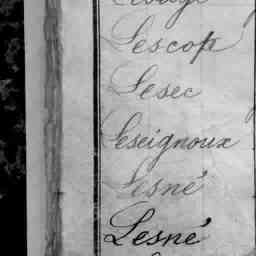 Lescop
Lesec
Leseignoux
Lesné
Lesné